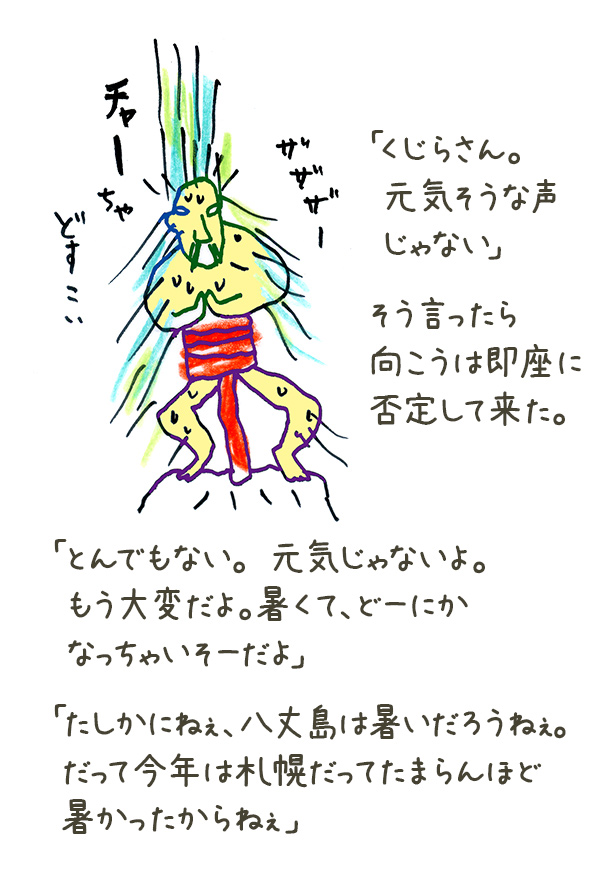 チャーちゃ
ザザザー
どすこい
「くじらさん。
元気そうな声
じゃない」
そう言ったら
向こうは即座に
否定して来た。
「とんでもない。 元気じゃないよ。
もう大変だよ。暑くて、どーにか
なっちゃいそーだよ」
「たしかにねぇ、八丈島は暑いだろうねぇ。
だって今年は札幌だってたまらんほど
暑かったからねぇ」